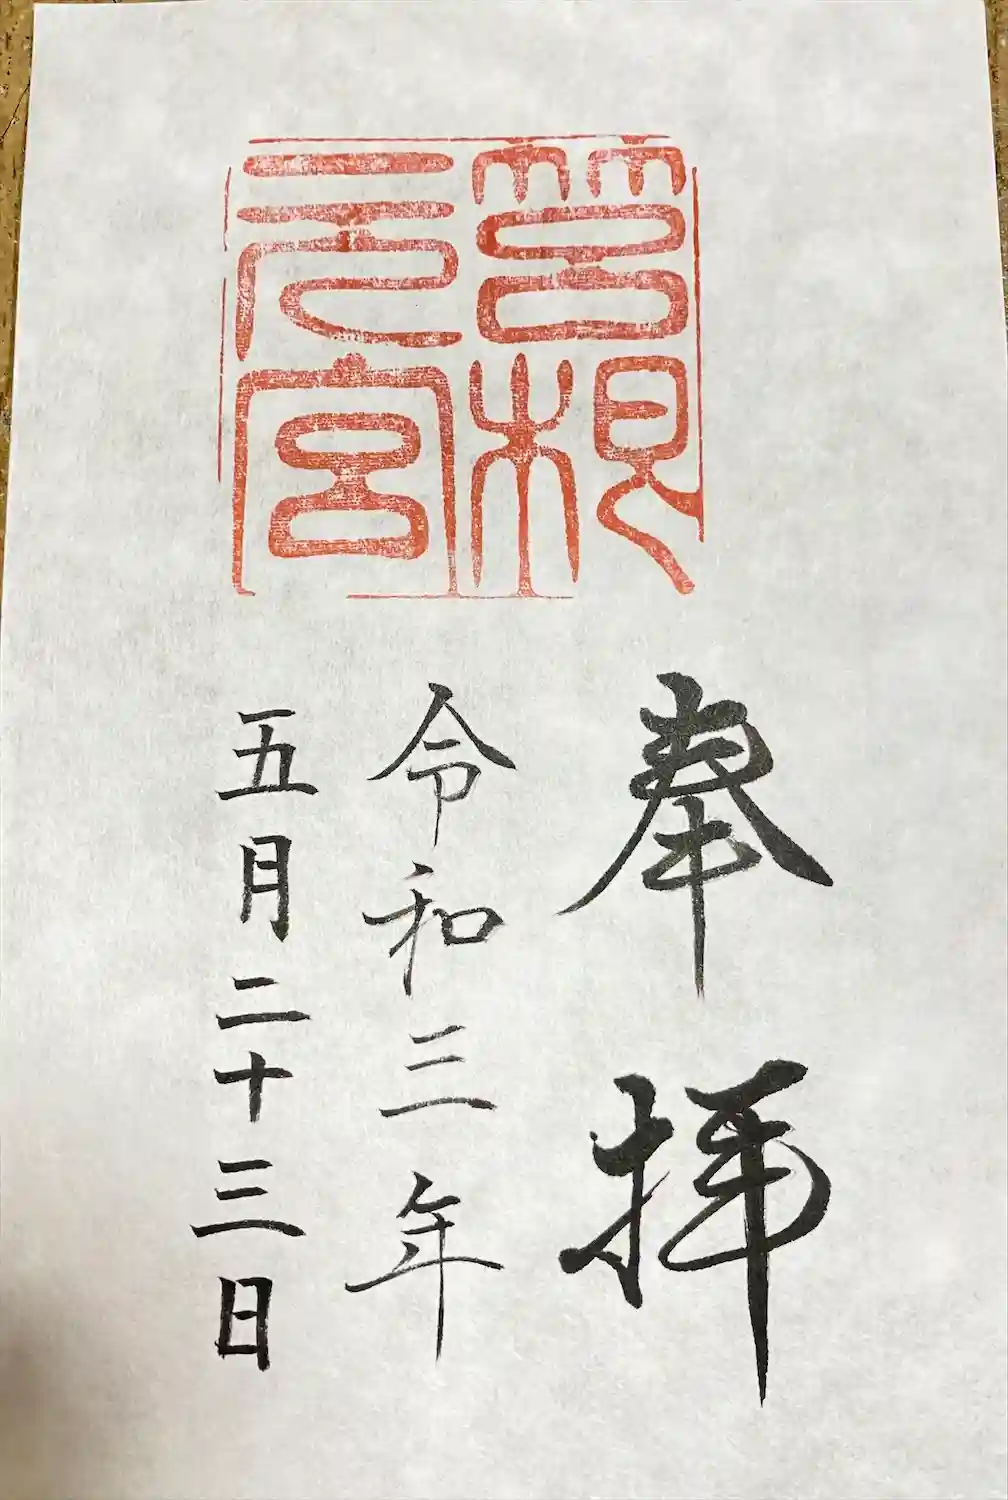 筥根
元宮
奉拝
令和三年
五月二十三日